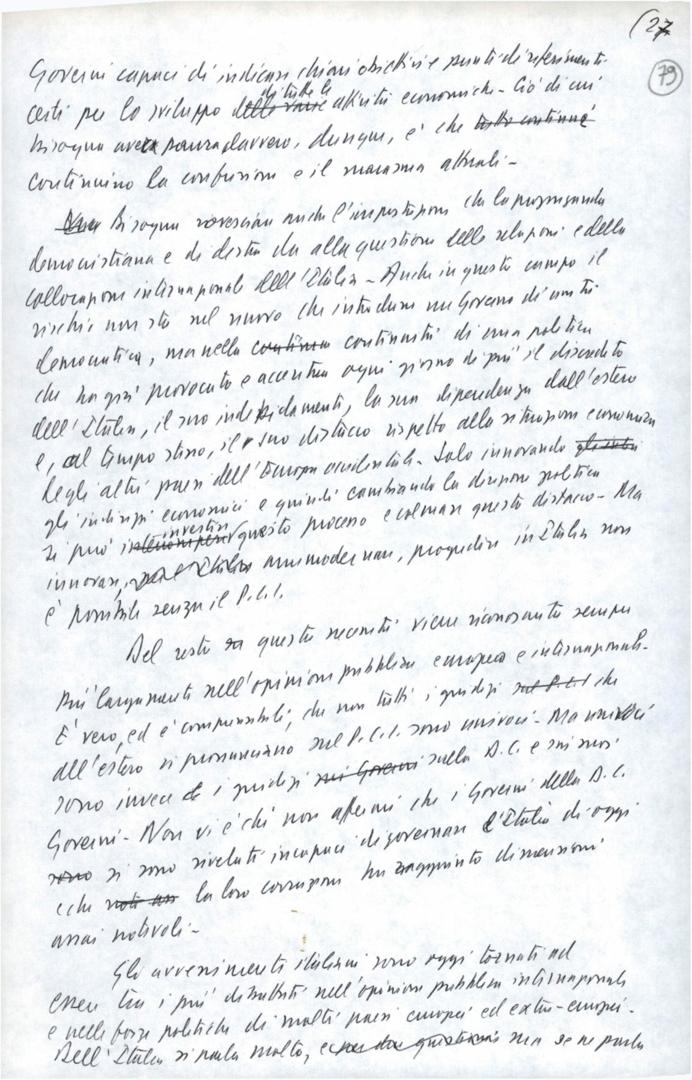 (27
79
Governi capaci di indicare chiari obiettivi e punti di riferimento
certi per lo sviluppo delle varie di tutte le attività economiche - Ciò di cui
bisogna avere paura davvero, dunque, è che tutto continui
continuino la confusione e il marasma attuali -
Bisogna rovesciare anche l'impostazione che la propaganda
democristiana e di destra dà alla questione delle relazioni e della
collocazione internazionale dell'Italia - Anche in questo campo il
rischio non sta nel nuovo che introdurrà un Governo di unità
democratica, ma nella continua continuità di una politica
che ha già provocato e accentua ogni giorno di più il discredito
dell'Italia, il suo indebidamento, la sua dipendenza dall'estero
e, al tempo stesso, il suo distacco rispetto alla situazione economica
degli altri paesi dell'Europa occidentale - Solo innovando
gli indirizzi economici e quindi cambiando la direzione politica
si può investire questo processo e colmare questo distacco - Ma
innovare, ammodernare, progredire in Italia non
è possibile senza il P.C.I.
Del resto questa necessità viene riconosciuta sempre
più largamente nell'opinione pubblica europea e internazionale -
È vero, ed è comprensibile, che non tutti i giudizi sul P.C.I. che
all'estero si pronunciano sul P.C.I. sono univoci - Ma univoci
sono invece i giudizi sui Governi sulla D.C. e sui suoi
Governi - Non vi è chi non affermi che i Governi della D.C.
sono si sono rivelati incapaci di governare l'Italia di oggi
e che la loro corruzione ha raggiunto dimensioni
assai notevoli -
Gli avvenimenti italiani sono oggi tornati ad
essere tra i più dibattuti nell'opinione pubblica internazionale
e nelle forze politiche di molti paesi europei ed extra-europei -
Dell'Italia si parla molto, ma se ne parla